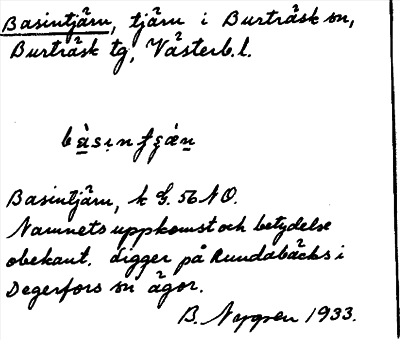 Basintjärn, tjärn i Burträsk sn,
Burträsk tg, Västerb.l.
Basintjärn, k G. 56 NO.
Namnets uppkomst och betydelse
obekant. Ligger på Rundabäcks i
Degerfors sn ägor.
B. Nygren 1933.